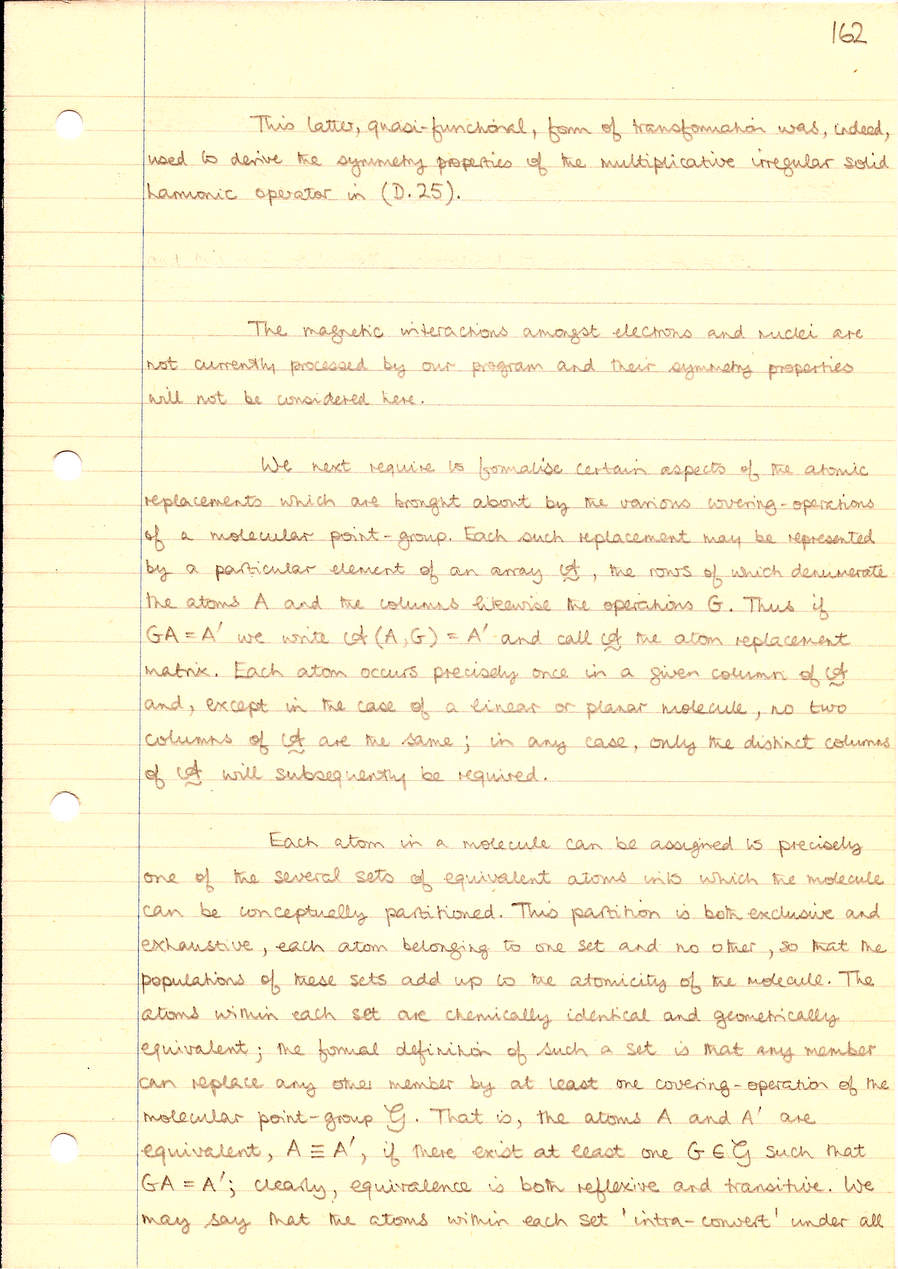 162
This latter, quasi-functional, form of transformation was, indeed,
used to derive the symmetry properties of the multiplicative irregular solid
harmonic operator in (D.25).
The magnetic interactions amongst electrons and nuclei are
not currently processed by our program and their symmetry properties
will not be considered here.
We next require to formalise certain aspects of the atomic
replacements which are brought about by the various covering-operations
of a molecular point-group. Each such replacement may be represented
by a particular element of an array 𝒜, the rows of which denumerate
the atoms A and the columns likewise the operations G. Thus if
GA = A′ we write 𝒜(A,G) = A′ and call 𝒜 the atom replacement
matrix. Each atom occurs precisely once in a given column of 𝒜
and, except in the case of a linear or planar molecule, no two
columns of 𝒜 are the same; in any case, only the distinct columns
of 𝒜 will subsequently be required.
Each atom in a molecule can be assigned to precisely
one of the several sets of equivalent atoms into which the molecule
can be conceptually partitioned. This partition is both exclusive and
exhaustive, each atom belonging to one set and no other, so that the
populations of these sets add up to the atomicity of the molecule. The
atoms within each set are chemically identical and geometrically
equivalent; the formal definition of such a set is that any member
can replace any other member by at least one covering-operation of the
molecular point-group 𝒢. That is, the atoms A and A′ are
equivalent, A ≡ A′, if there exist at least one G ∈ 𝒢 such that
GA = A′; clearly, equivalence is both reflexive and transitive. We
may say that the atoms within each set 'intra-convert' under all